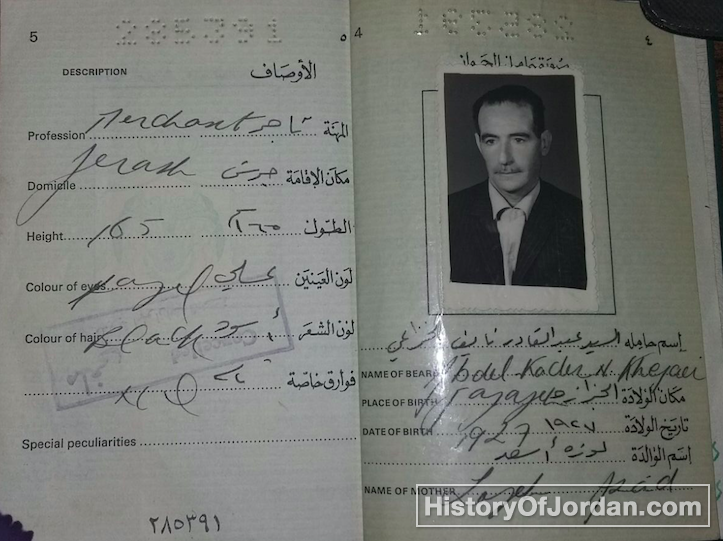 5
٥
285391
DESCRIPTION الأوصاف
Profession Merchant تاجر المهنة
Domicile Jerash جرش مكان الإقامة
Height 165 الطول
Colour of eyes Hazel عسلي لون العينين
Colour of hair Black أسود لون الشعر
فوارق خاصة
Special peculiarities
٢٨٥٣٩١
4
٤
285391
صورة حامل الجواز
إسم حامله السيد عبد القادر نايف الخزاعي
NAME OF BEARER Abdel Kader N. Khezai
مكان الولادة
PLACE OF BIRTH
تاريخ الولادة ١٩٢٧
DATE OF BIRTH 1927
إسم الوالدة لوزه أسعد
NAME OF MOTHER Lozeh Asad
HistoryOfJordan.com